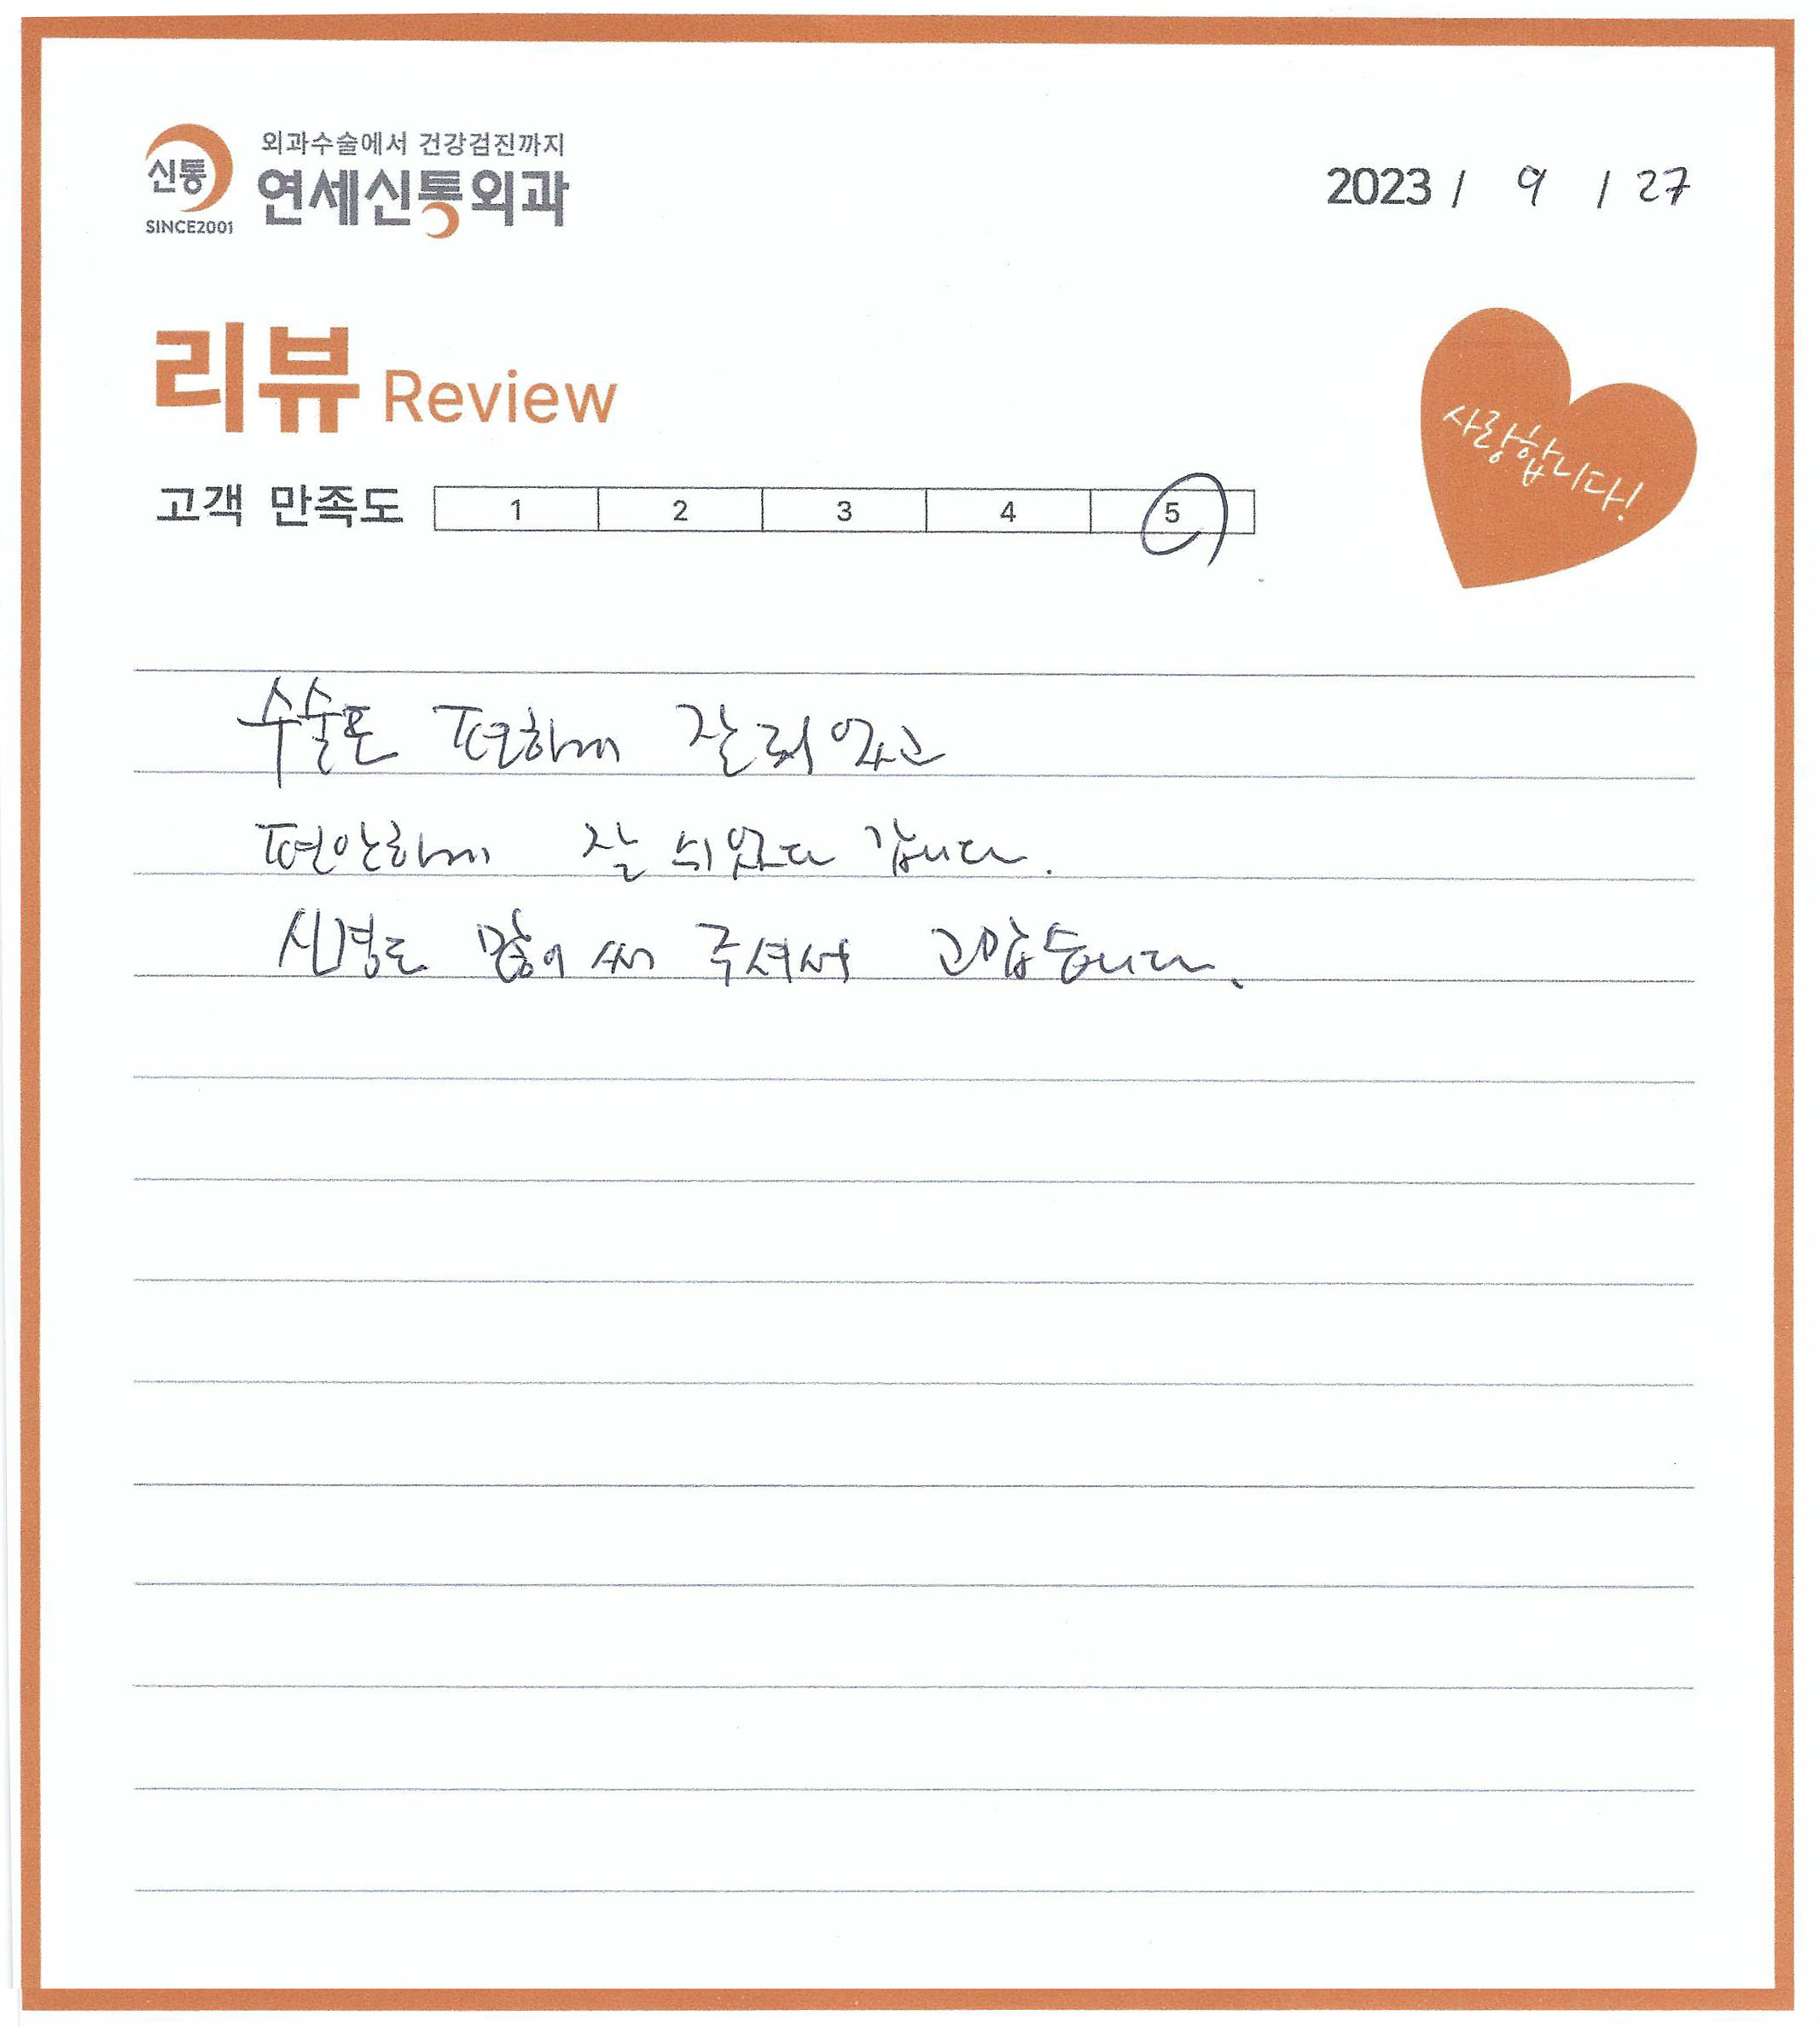 외과수술에서 건강검진까지
신통 연세신통외과
SINCE2001
2023 / 9 / 27
리뷰 Review
사랑합니다!
고객 만족도 1 2 3 4 5
수술도 편하게 잘 되었고
편안하게 잘 쉬었다 갑니다.
신경도 많이 써 주셔서 고맙습니다.